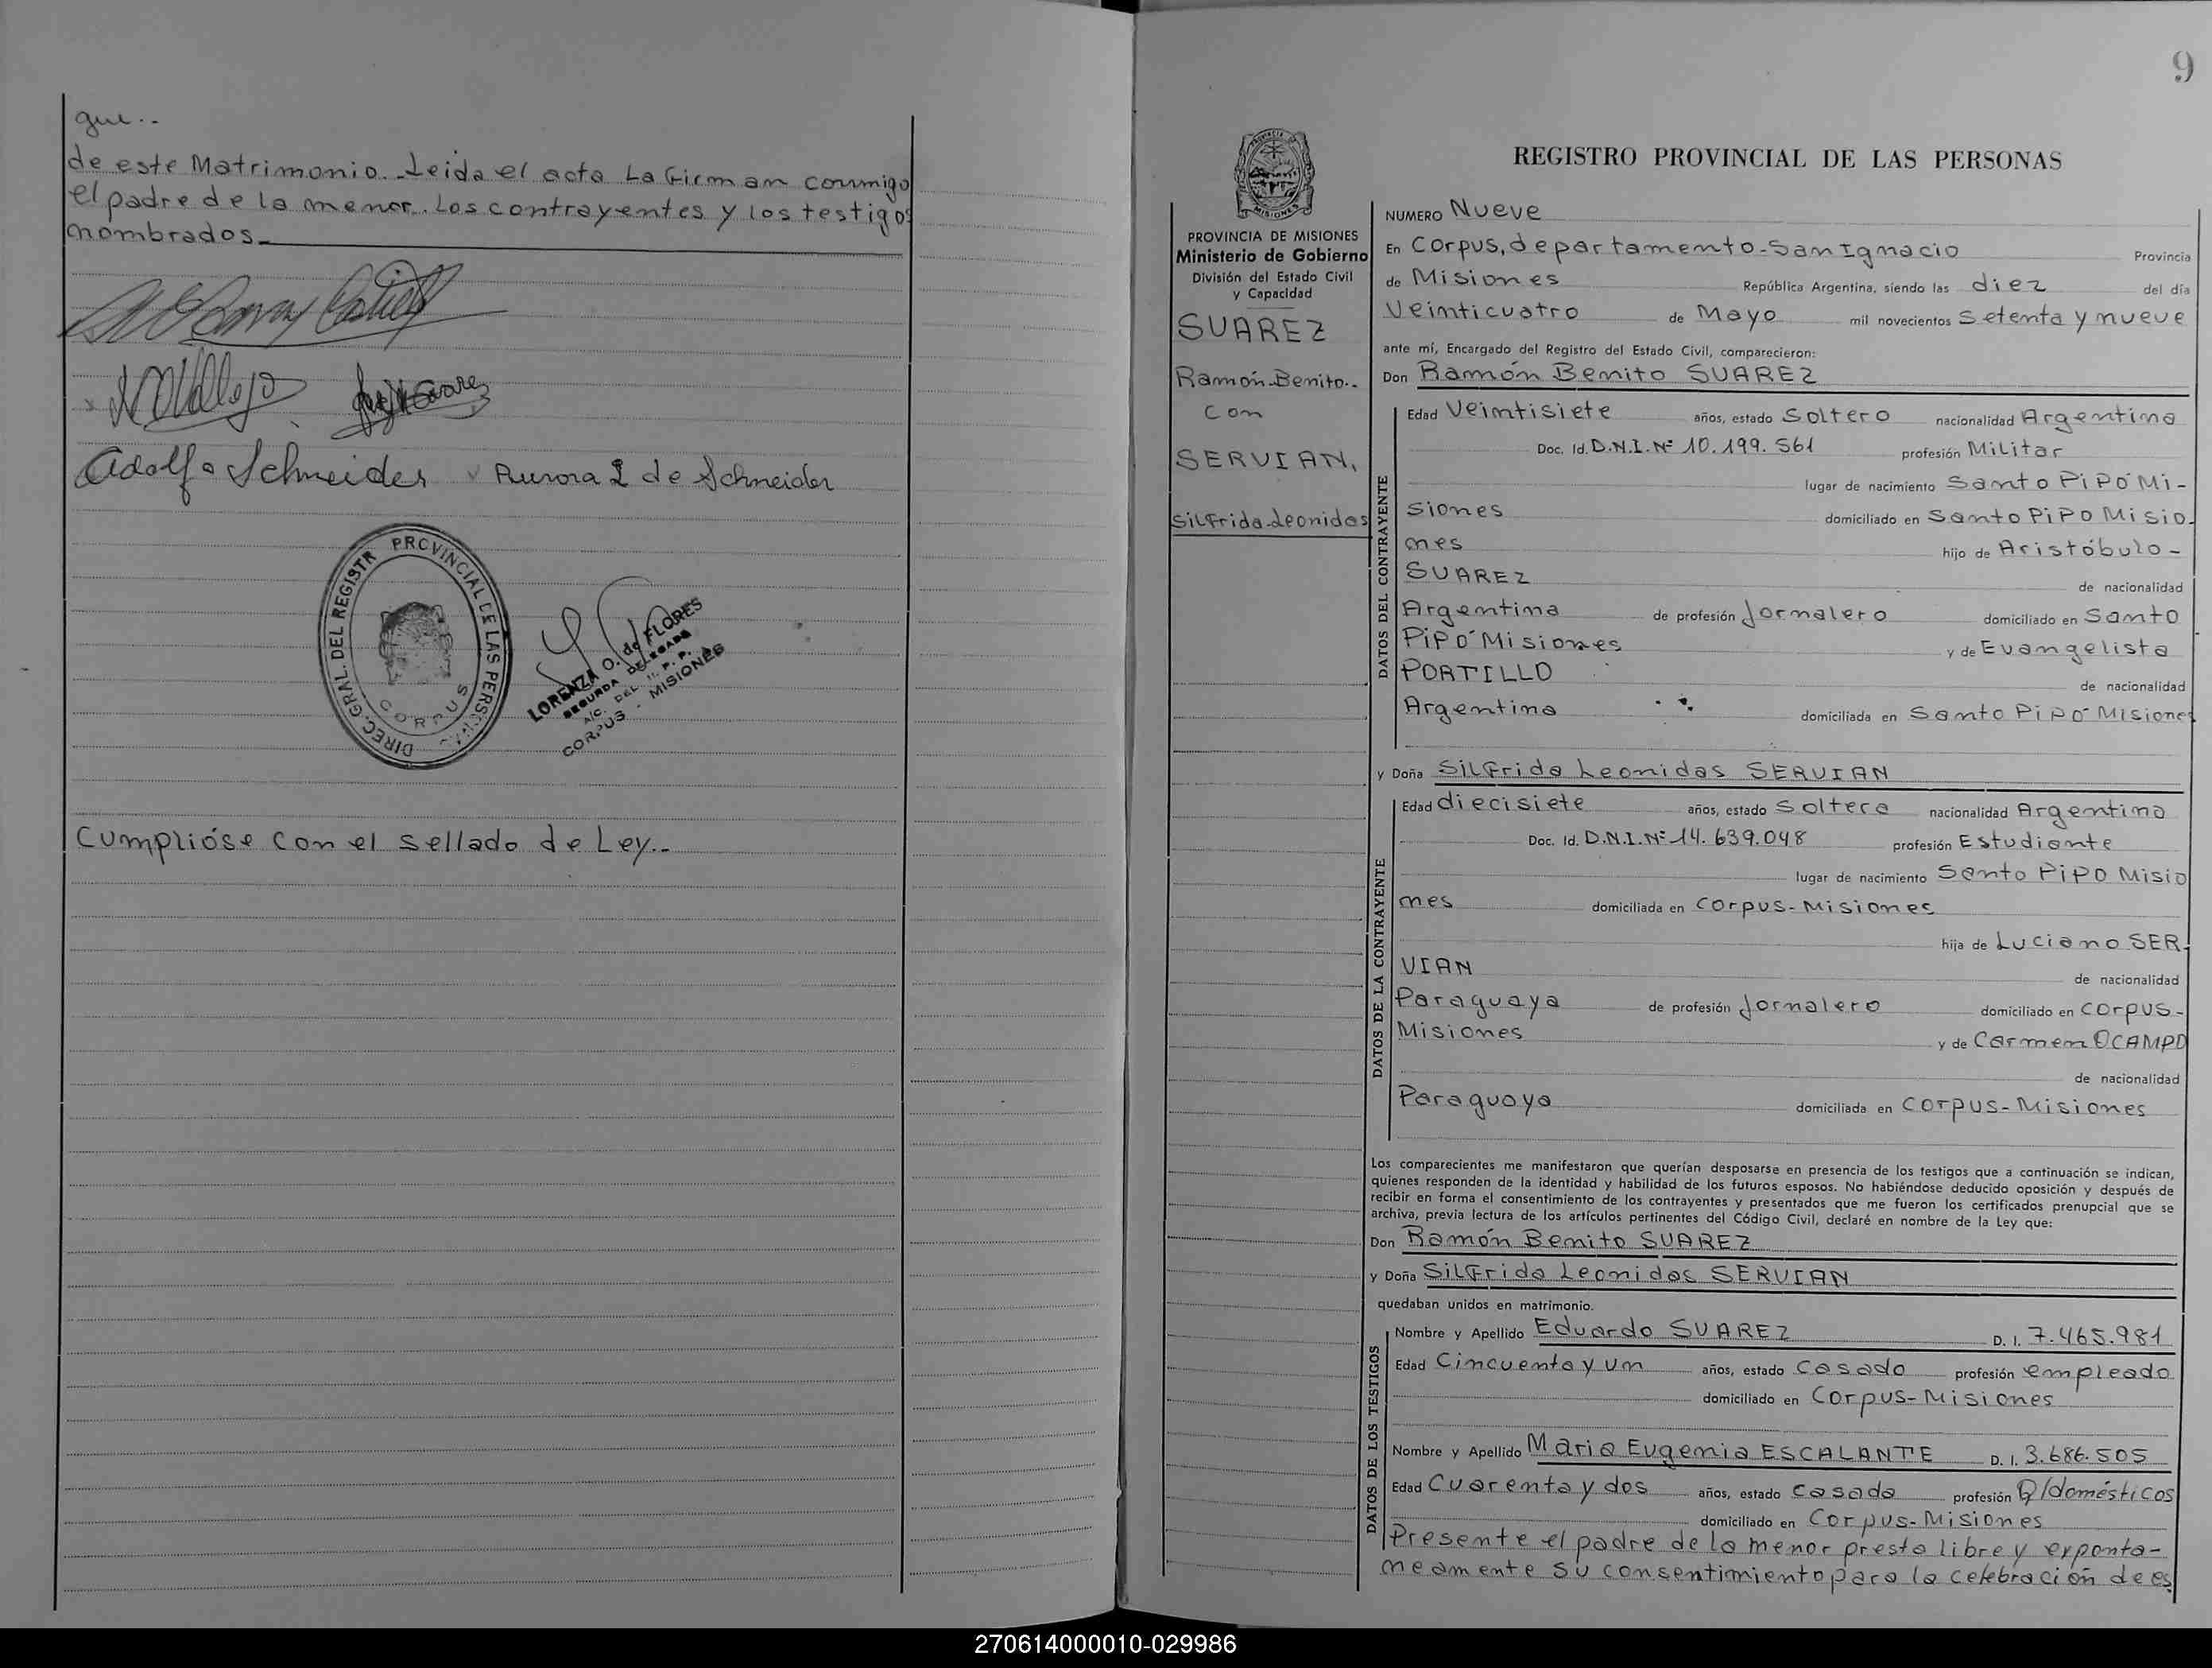 que..
de este Matrimonio.. Leida el acta La Firman conmigo
el padre de la menor.. Los contrayentes y los testigos
nombrados_
Adolfo Schneider Aurora L de Schneider
DIREC. GRAL. DEL REGISTR PROVINCIAL DE LAS PERSONAS
CORPUS
LORENZA O. de FLORES
SEGUNDA DELEGADA
A/C. DEL R. P. P.
CORPUS - MISIONES
Cumplióse con el sellado de Ley..
9
PROVINCIA DE MISIONES
Ministerio de Gobierno
División del Estado Civil
y Capacidad
SUAREZ
Ramón-Benito..
con
SERVIAN,
Silfrida-Leonidas
REGISTRO PROVINCIAL DE LAS PERSONAS
NUMERO Nueve
En Corpus, departamento-San Ignacio Provincia
de Misiones República Argentina, siendo las diez del día
Veinticuatro de Mayo mil novecientos setenta y nueve
ante mí, Encargado del Registro del Estado Civil, comparecieron:
Don Ramón Benito SUAREZ
DATOS DEL CONTRAYENTE
Edad Veintisiete años, estado Soltero nacionalidad Argentina
Doc. Id. D.N.I. Nº 10.199.561 profesión Militar
lugar de nacimiento Santo Pipó Mi-
siones domiciliado en Santo Pipo Misio-
nes hijo de Aristóbulo-
SUAREZ de nacionalidad
Argentina de profesión Jornalero domiciliado en Santo
Pipó Misiones y de Evangelista
PORTILLO de nacionalidad
Argentina domiciliada en Santo Pipó Misiones
y Doña Silfrida Leonidas SERVIAN
DATOS DE LA CONTRAYENTE
Edad diecisiete años, estado Soltera nacionalidad Argentina
Doc. Id. D.N.I. Nº 14.639.048 profesión Estudiante
lugar de nacimiento Santo Pipo Misio
nes domiciliada en Corpus-Misiones
hija de Luciano SER-
VIAN de nacionalidad
Paraguaya de profesión Jornalero domiciliado en Corpus-
Misiones y de Carmen OCAMPO
de nacionalidad
Paraguaya domiciliada en Corpus-Misiones
Los comparecientes me manifestaron que querían desposarse en presencia de los testigos que a continuación se indican,
quienes responden de la identidad y habilidad de los futuros esposos. No habiéndose deducido oposición y después de
recibir en forma el consentimiento de los contrayentes y presentados que me fueron los certificados prenupcial que se
archiva, previa lectura de los artículos pertinentes del Código Civil, declaré en nombre de la Ley que:
Don Ramón Benito SUAREZ
y Doña Silfrida Leonidas SERVIAN
quedaban unidos en matrimonio.
DATOS DE LOS TESTIGOS
Nombre y Apellido Eduardo SUAREZ D. I. 7.465.981
Edad Cincuenta y un años, estado Casado profesión empleado
domiciliado en Corpus-Misiones
Nombre y Apellido Maria Eugenia ESCALANTE D. I. 3.686.505
Edad Cuarenta y dos años, estado Casada profesión Q/domésticos
domiciliado en Corpus-Misiones
Presente el padre de la menor presta libre y exponta-
neamente su consentimiento para la celebración de es
270614000010-029986